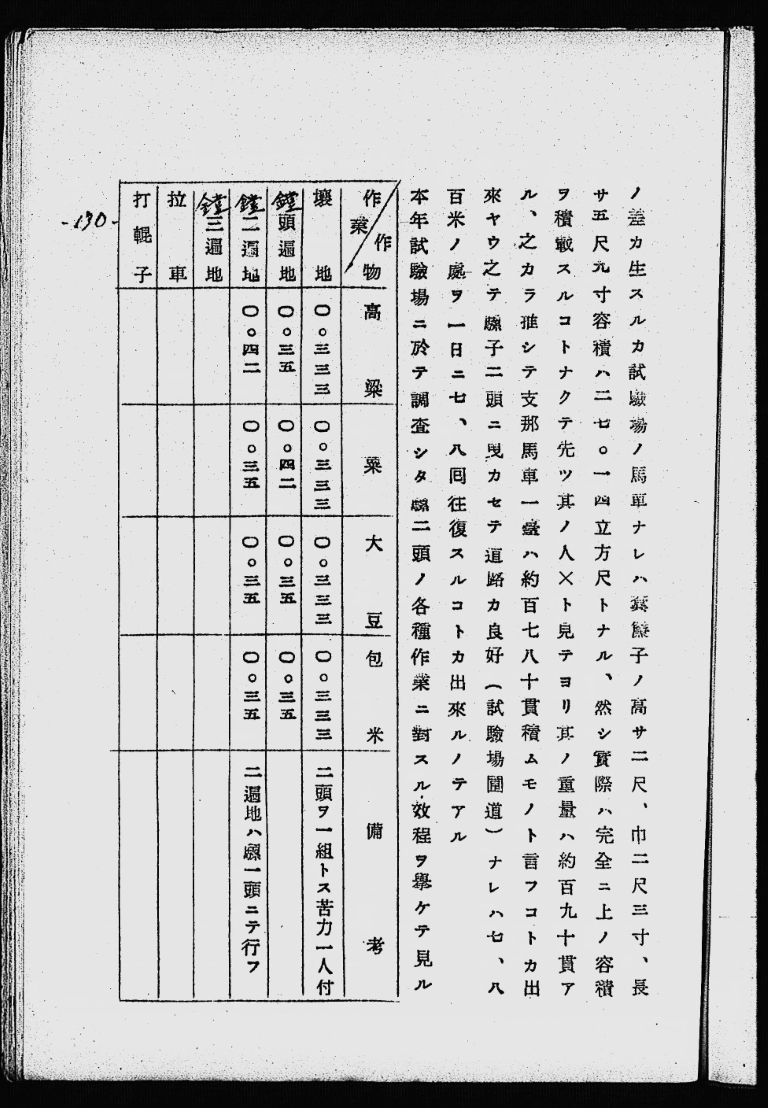 ノ差カ生スルカ試驗場ノ馬車ナレハ糞簾子ノ高サ二尺、巾二尺三寸、長
サ五尺九寸容積ハ二七〇一四立方尺トナル、然シ實際ハ完全ニ上ノ容積
ヲ積載スルコトナクテ先ツ其ノ人×ト見テヨリ其ノ重量ハ約百九十貫ア
ル、之カラ推シテ支那馬車一臺ハ約百七八十貫積ムモノト言フコトカ出
來ヤウ之テ騾子二頭ニ曳カセテ道路カ良好(試驗場圃道)ナレハ七、八
百米ノ處ヲ一日ニ七、八囘往復スルコトカ出來ルノテアル
本年試驗場ニ於テ調査シタ騾二頭ノ各種作業ニ對スル效程ヲ擧ケテ見ル
作物 作業 高粱 粟 大豆 包米 備考
壤地 〇。三三三 〇。三三三 〇。三三三 〇。三三三 二頭ヲ一組トス苦力一人付
鏜頭遍地 〇。三五 〇。四二 〇。三五 〇。三五
鏜二遍地 〇。四二 〇。三五 〇。三五 〇。三五 二遍地ハ騾一頭ニテ行フ
鏜三遍地
拉車
打輥子
-130-